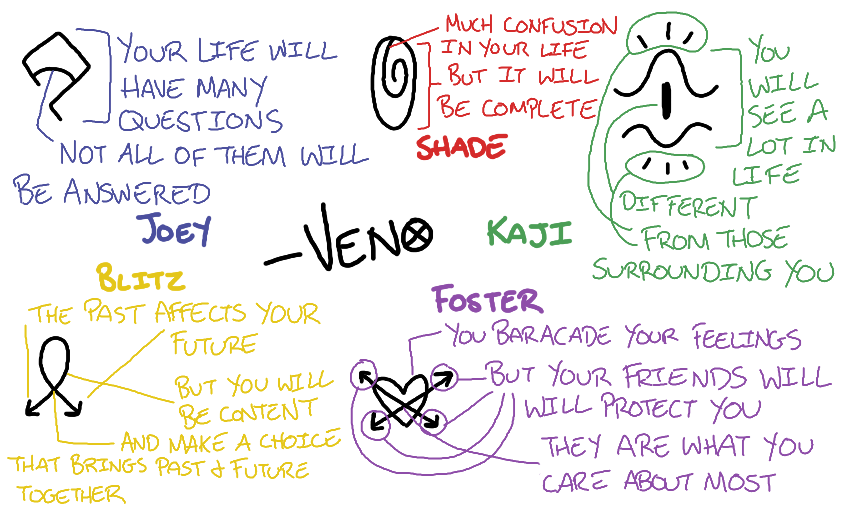 YOUR LIFE WILL
HAVE MANY
QUESTIONS
NOT ALL OF THEM WILL
BE ANSWERED
JOEY
MUCH CONFUSION
IN YOUR LIFE
BUT IT WILL
BE COMPLETE
SHADE
YOU
WILL
SEE A
LOT IN
LIFE
DIFFERENT
FROM THOSE
SURROUNDING YOU
KAJI
-VENO
BLITZ
THE PAST AFFECTS YOUR
FUTURE
BUT YOU WILL
BE CONTENT
AND MAKE A CHOICE
THAT BRINGS PAST & FUTURE
TOGETHER
FOSTER
YOU BARACADE YOUR FEELINGS
BUT YOUR FRIENDS WILL
WILL PROTECT YOU
THEY ARE WHAT YOU
CARE ABOUT MOST